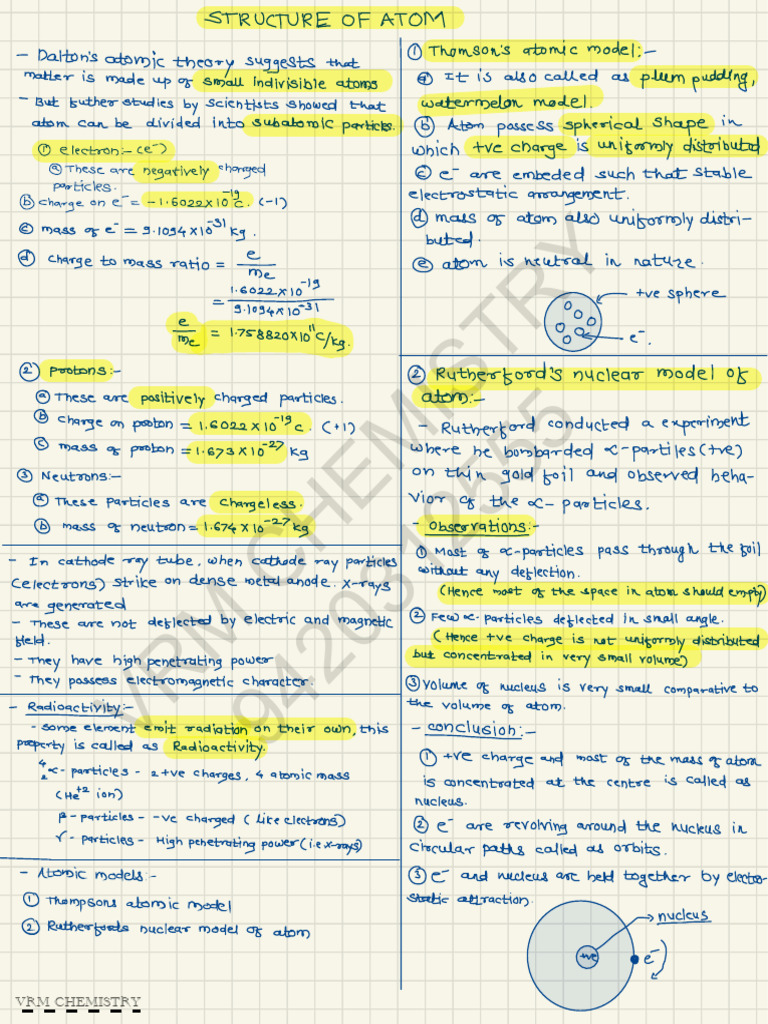 STRUCTURE OF ATOM
- Dalton's atomic theory suggests that
matter is made up of small indivisible atoms
- But futher studies by scientists showed that
atom can be divided into subatomic particles.
① electron:- (e⁻)
ⓐ These are negatively charged
particles.
ⓑ charge on e⁻ = -1.6022×10⁻¹⁹ C. (-1)
ⓒ mass of e⁻ = 9.1094×10⁻³¹ kg.
ⓓ charge to mass ratio = e/mₑ
= 1.6022×10⁻¹⁹/9.1094×10⁻³¹
e/mₑ = 1.758820×10¹¹ C/kg.
② Protons:-
ⓐ These are positively charged particles.
ⓑ charge on proton = 1.6022×10⁻¹⁹ C. (+1)
ⓒ mass of proton = 1.673×10⁻²⁷ kg
③ Neutrons:-
ⓐ These particles are chargeless.
ⓑ mass of neutron = 1.674×10⁻²⁷ kg
- In cathode ray tube, when cathode ray particles
(electrons) strike on dense metal anode. X-rays
are generated
- These are not deflected by electric and magnetic
field.
- They have high penetrating power
- They possess electromagnetic character.
- Radioactivity:-
- some element emit radiation on their own, this
property is called as Radioactivity.
⁴₂α- particles - 2 +ve charges, 4 atomic mass
(He⁺² ion)
β- particles - -ve charged (like electrons)
γ- particles - High penetrating power (i.e x-rays)
- Atomic models:-
① Thompsons atomic model
② Rutherfords nuclear model of atom
① Thomson's atomic model:-
ⓐ It is also called as plum pudding,
watermelon model.
ⓑ Atom possess spherical shape in
which +ve charge is uniformly distributed
ⓒ e⁻ are embeded such that stable
electrostatic arrangement.
ⓓ mass of atom also uniformly distri-
buted.
ⓔ atom is neutral in nature.
+ve sphere
e⁻.
② Rutherford's nuclear model of
atom:-
- Rutherford conducted a experiment
where he bombarded α-partiles (+ve)
on thin gold foil and observed beha-
vior of the α- particles.
- Observations:-
① Most of α-particles pass through the foil
without any deflection.
(Hence most of the space in atom should empty)
② Few α-particles deflected in small angle.
(Hence +ve charge is not uniformly distributed
but concentrated in very small volume)
③ volume of nucleus is very small comparative to
the volume of atom.
- conclusion:-
① +ve charge and most of the mass of atom
is concentrated at the centre is called as
nucleus.
② e⁻ are revolving around the nucleus in
circular paths called as orbits.
③ e⁻ and nucleus are held together by electro-
static attraction.
nucleus
+ve
e⁻
VRM CHEMISTRY
9420312565
VRM CHEMISTRY